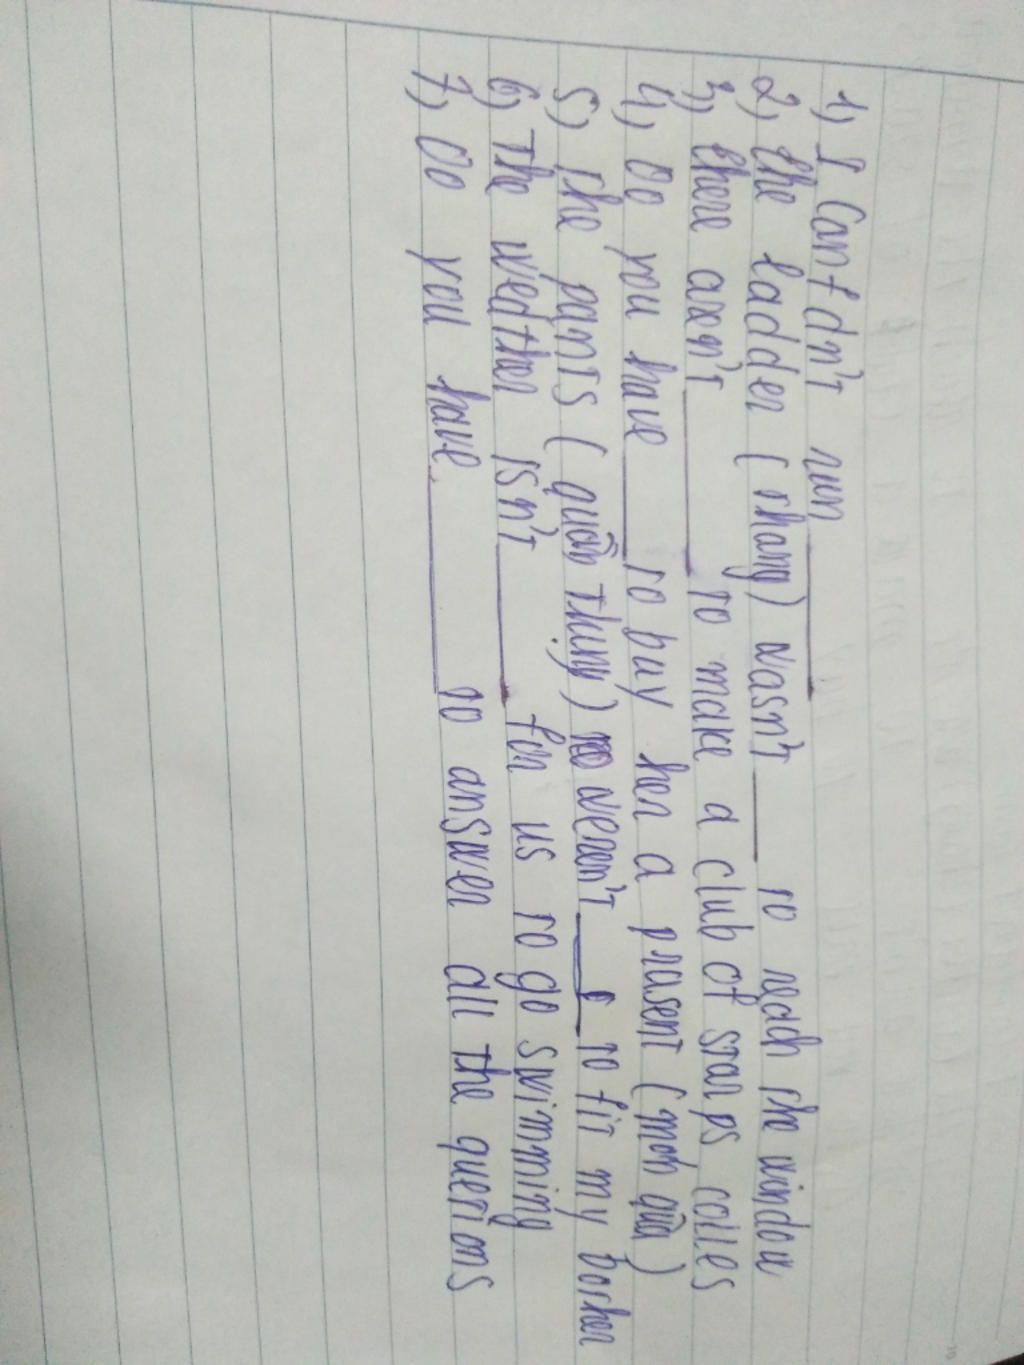 1) I Cant dn't run ______
2) the ladder (thang) wasn't ____ to reach the window
3) there aren't ______ to make a club of stamps colles
4) Do you have ____ to buy her a prasent (món quà)
5) The pants (quần thụng) weren't ____ to fit my borher
6) The wedther isn't ____ for us to go swimming
7) Do you have ______ to answer all the quetions